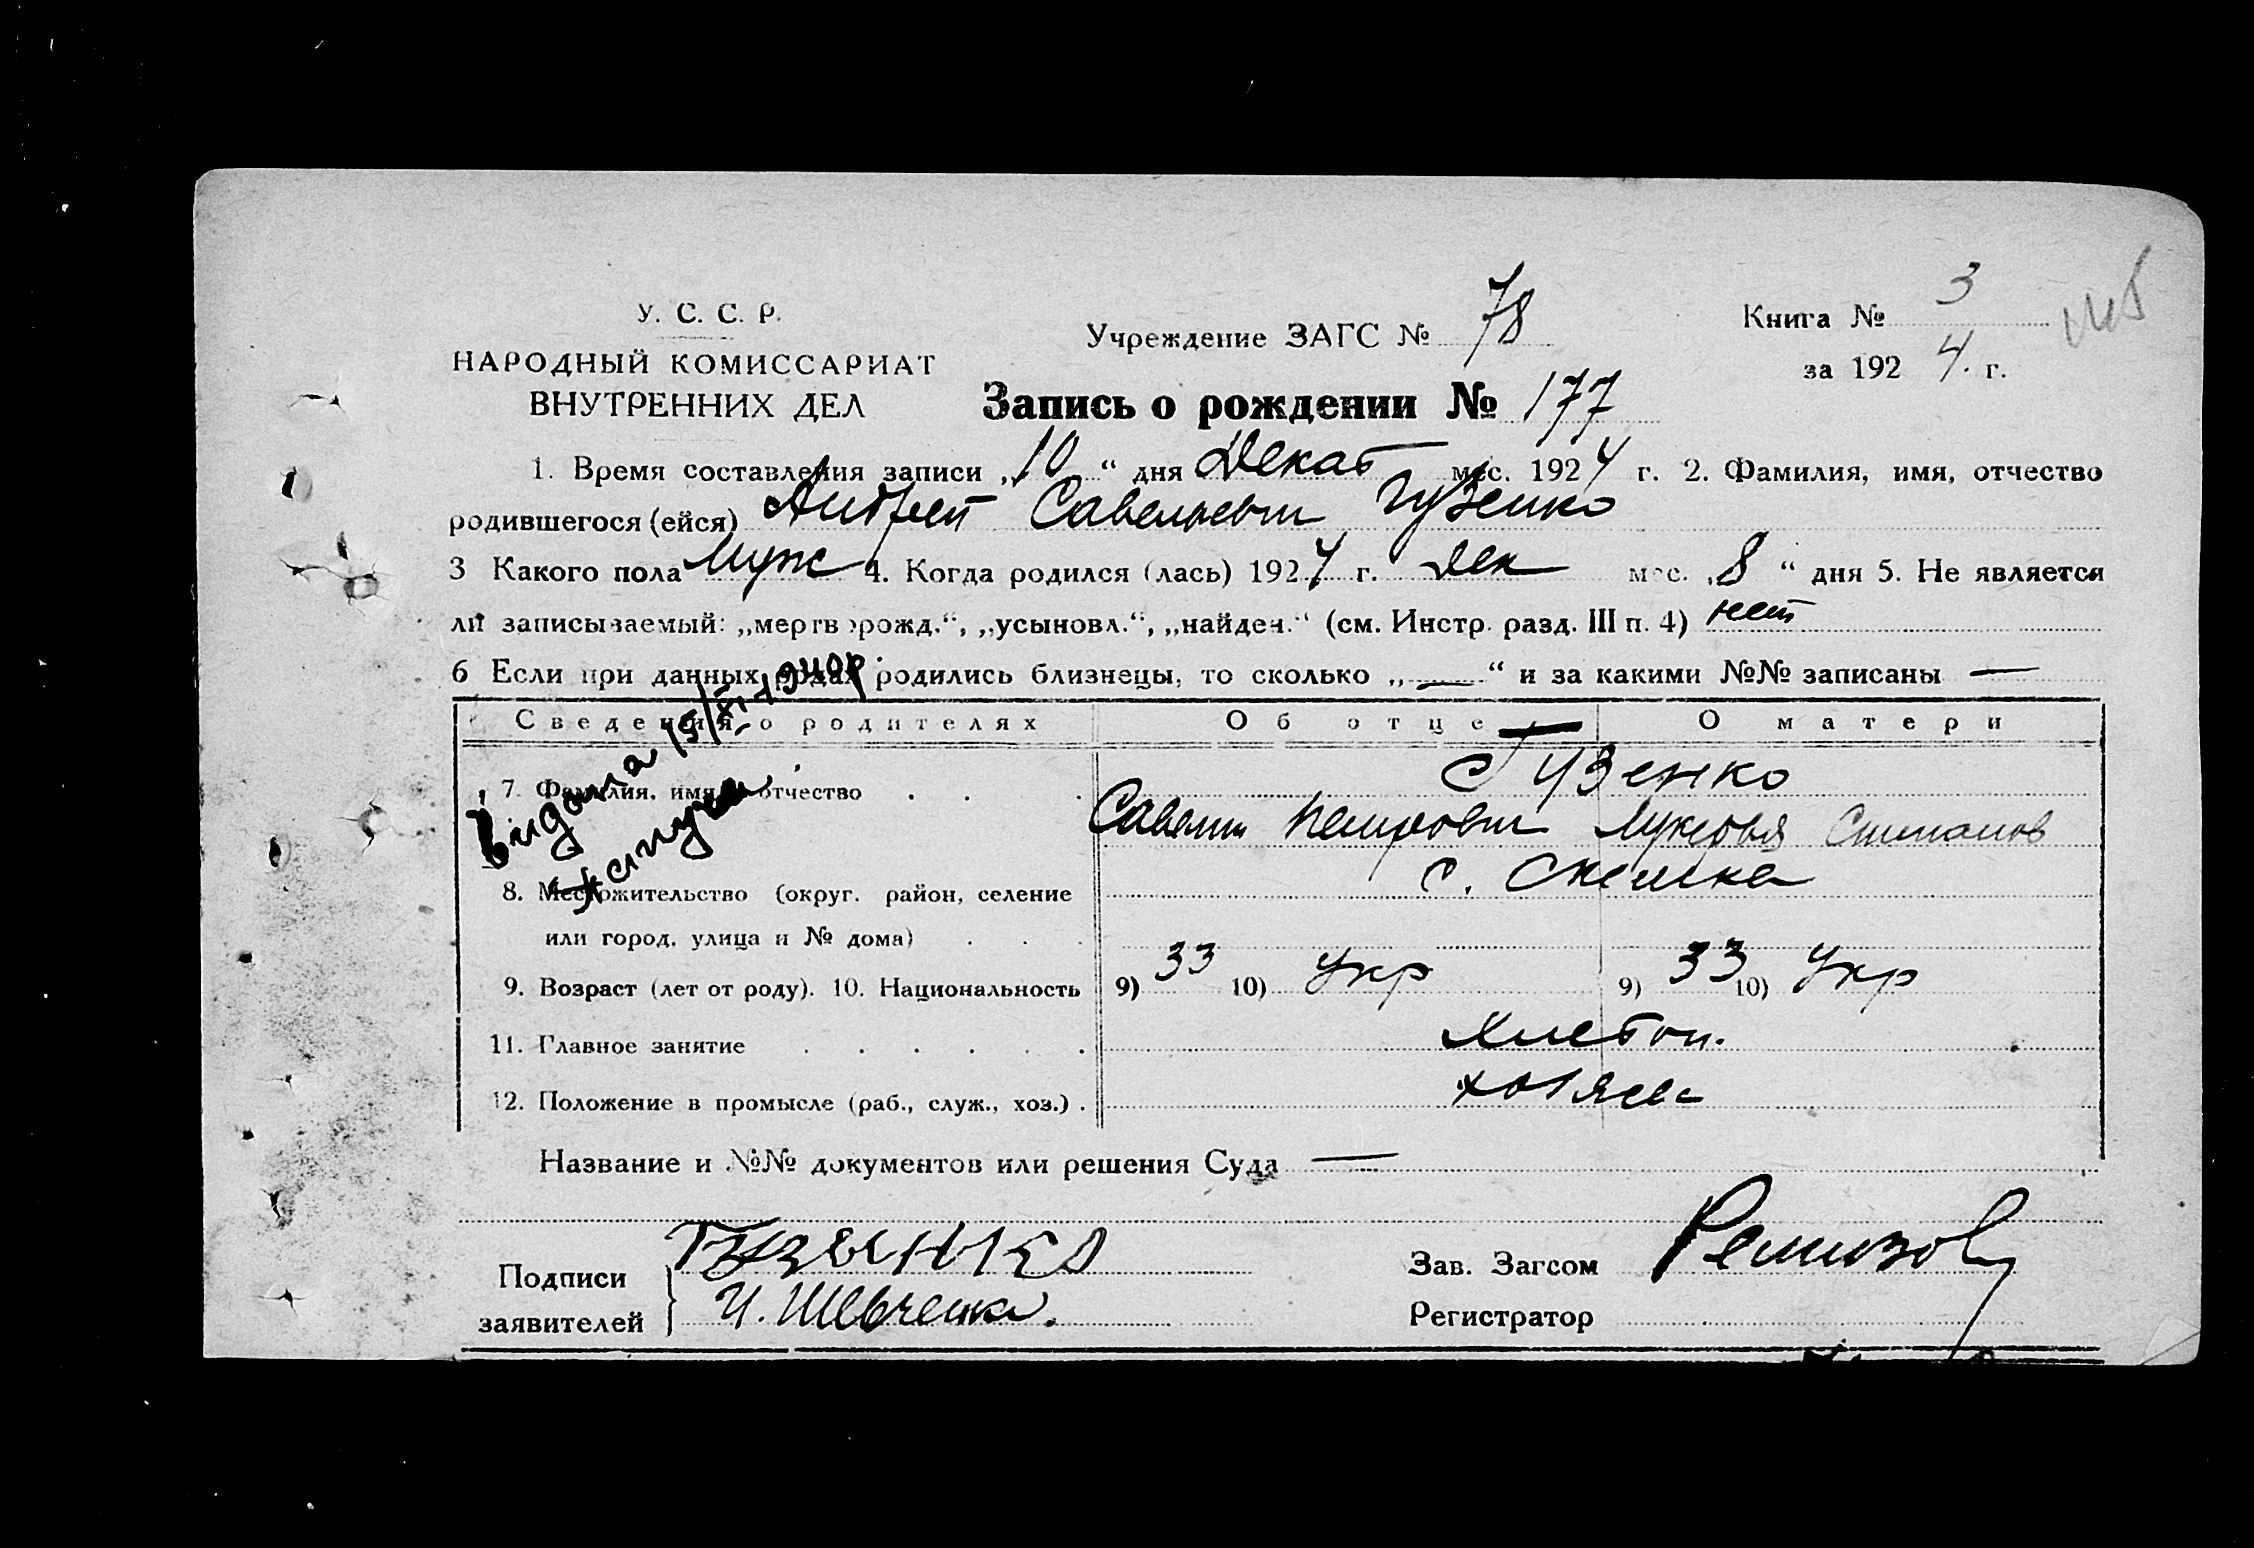 У. С. С. Р.
НАРОДНЫЙ КОМИССАРИАТ
ВНУТРЕННИХ ДЕЛ
Учреждение ЗАГС № 78
Книга № 3
за 1924 г.
Запись о рождении № 177
1. Время составления записи „10“ дня Декаб мес. 1924 г. 2. Фамилия, имя, отчество
родившегося (ейся) Андрей Савельевич Гузенко
3 Какого пола Муж 4. Когда родился (лась) 1924 г. Дек мес. „8“ дня 5. Не является
ли записываемый: „мертворожд.“, „усыновл.“, „найден.“ (см. Инстр. разд. III п. 4) нет
6 Если при данных родах родились близнецы, то сколько „—“ и за какими №№ записаны —
Сведения о родителях Об отце О матери
7. Фамилия, имя, отчество . . . Гузенко
Савелий Петрович Лукерья Степанов
8. Местожительство (округ. район, селение с. Скелька
или город, улица и № дома) . . .
9. Возраст (лет от роду). 10. Национальность 9) 33 10) Укр 9) 33 10) Укр
11. Главное занятие . . . . . . Хлебоп.
12. Положение в промысле (раб., служ., хоз.) . хозяева
Видана 15/XI 1940р
Название и №№ документов или решения Суда —
Подписи
заявителей
Гузенко
И. Шевченко.
Зав. Загсом Ремизов
Регистратор